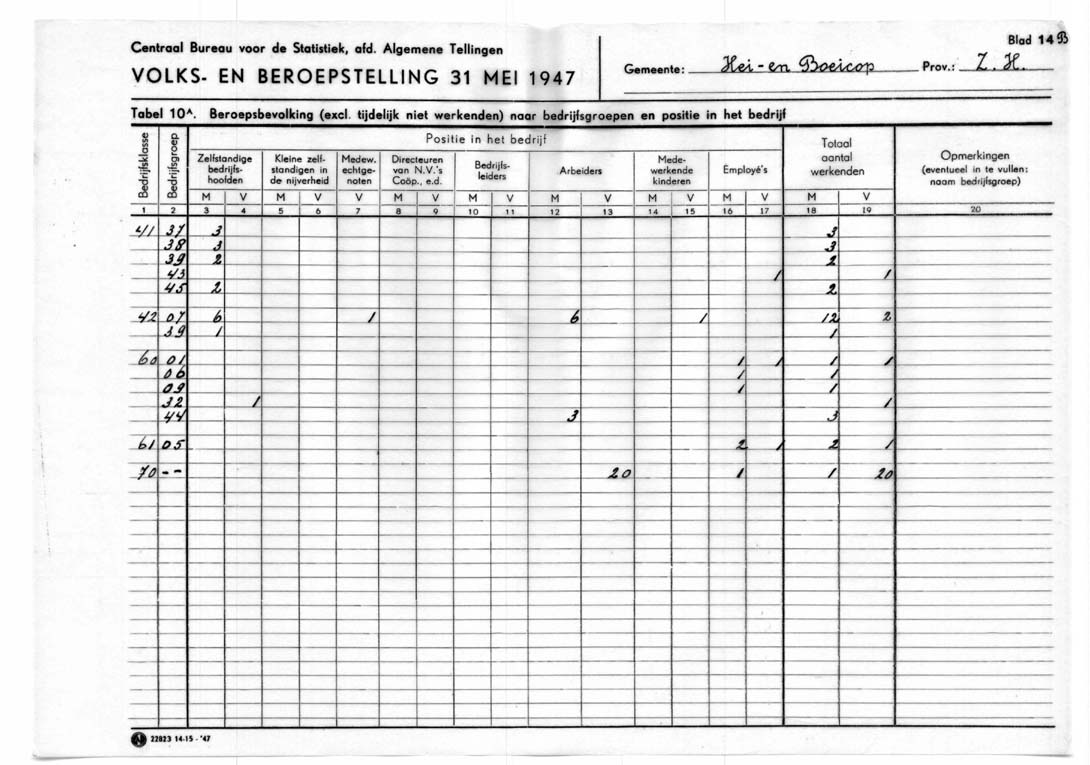 Centraal Bureau voor de Statistiek, afd. Algemene Tellingen
VOLKS- EN BEROEPSTELLING 31 MEI 1947
Gemeente: Hei- en Boeicop Prov.: Z. H.
Blad 14 B
Tabel 10A. Beroepsbevolking (excl. tijdelijk niet werkenden) naar bedrijfsgroepen en positie in het bedrijf
Bedrijfsklasse
Bedrijfsgroep
Positie in het bedrijf
Zelfstandige bedrijfs- hoofden
Kleine zelf- standigen in de nijverheid
Medew. echtge- noten
Directeuren van N.V.'s Coöp., e.d.
Bedrijfs- leiders
Arbeiders
Mede- werkende kinderen
Employé's
Totaal aantal werkenden
Opmerkingen (eventueel in te vullen: naam bedrijfsgroep)
M V M V V M V M V M V M V M V M V
1 2 3 4 5 6 7 8 9 10 11 12 13 14 15 16 17 18 19 20
41 37 3 3
38 3 3
39 2 2
43 1 1
45 2 2
42 07 6 1 6 1 12 2
39 1 1
60 01 1 1 1 1
06 1 1
09 1 1
32 1 1
44 3 3
61 05 2 1 2 1
70 - - 20 1 1 20
22823 14-15 - '47